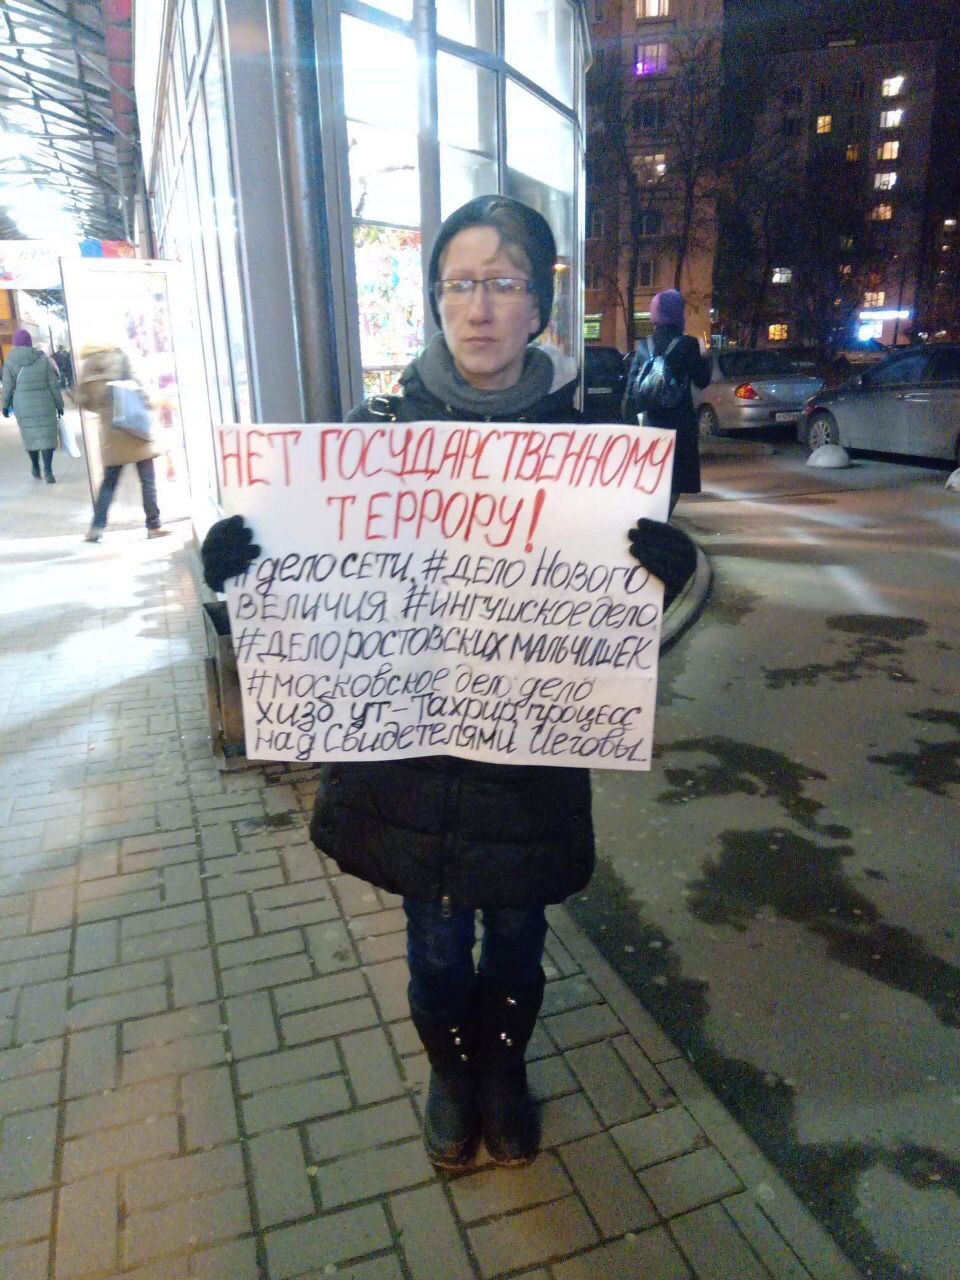 НЕТ ГОСУДАРСТВЕННОМУ
ТЕРРОРУ!
#дело сети, #дело Нового
величия #ингушское дело,
#дело ростовских мальчишек
#московское дело, дело
Хизб ут-Тахрир, процесс
над Свидетелями Иеговы..